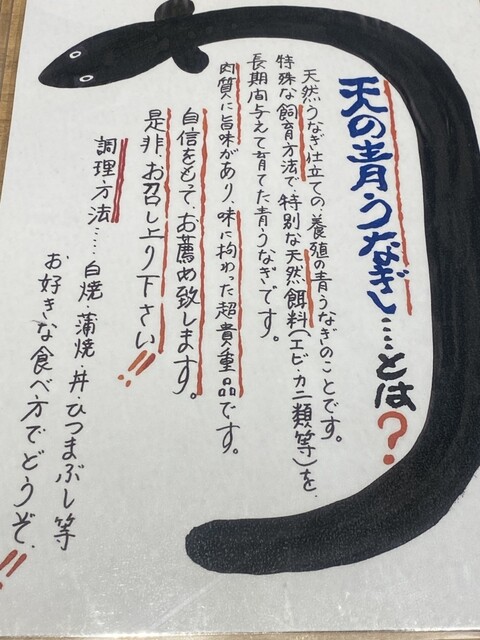 天の青うなぎ…とは?
天然うなぎ仕立ての養殖の青うなぎのことです。
特殊な飼育方法で、特別な天然餌料(エビ・カニ類等)を、
長期間与えて育てた青うなぎです。
肉質に旨味があり、味に拘わった超貴重品です。
自信をもって、お薦め致します。
是非、お召し上り下さい!!
調理方法……白焼・蒲焼・丼・ひつまぶし等
お好きな食べ方でどうぞ、!!